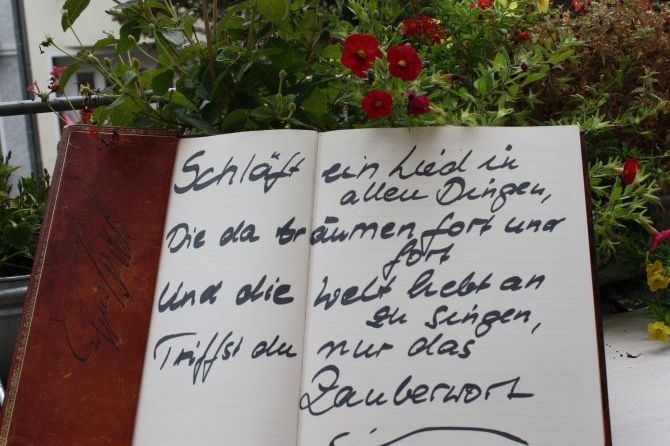 Schläft ein Lied in
allen Dingen,
Die da träumen fort und
fort
Und die Welt hebt an
zu singen,
Triffst du nur das
Zauberwort